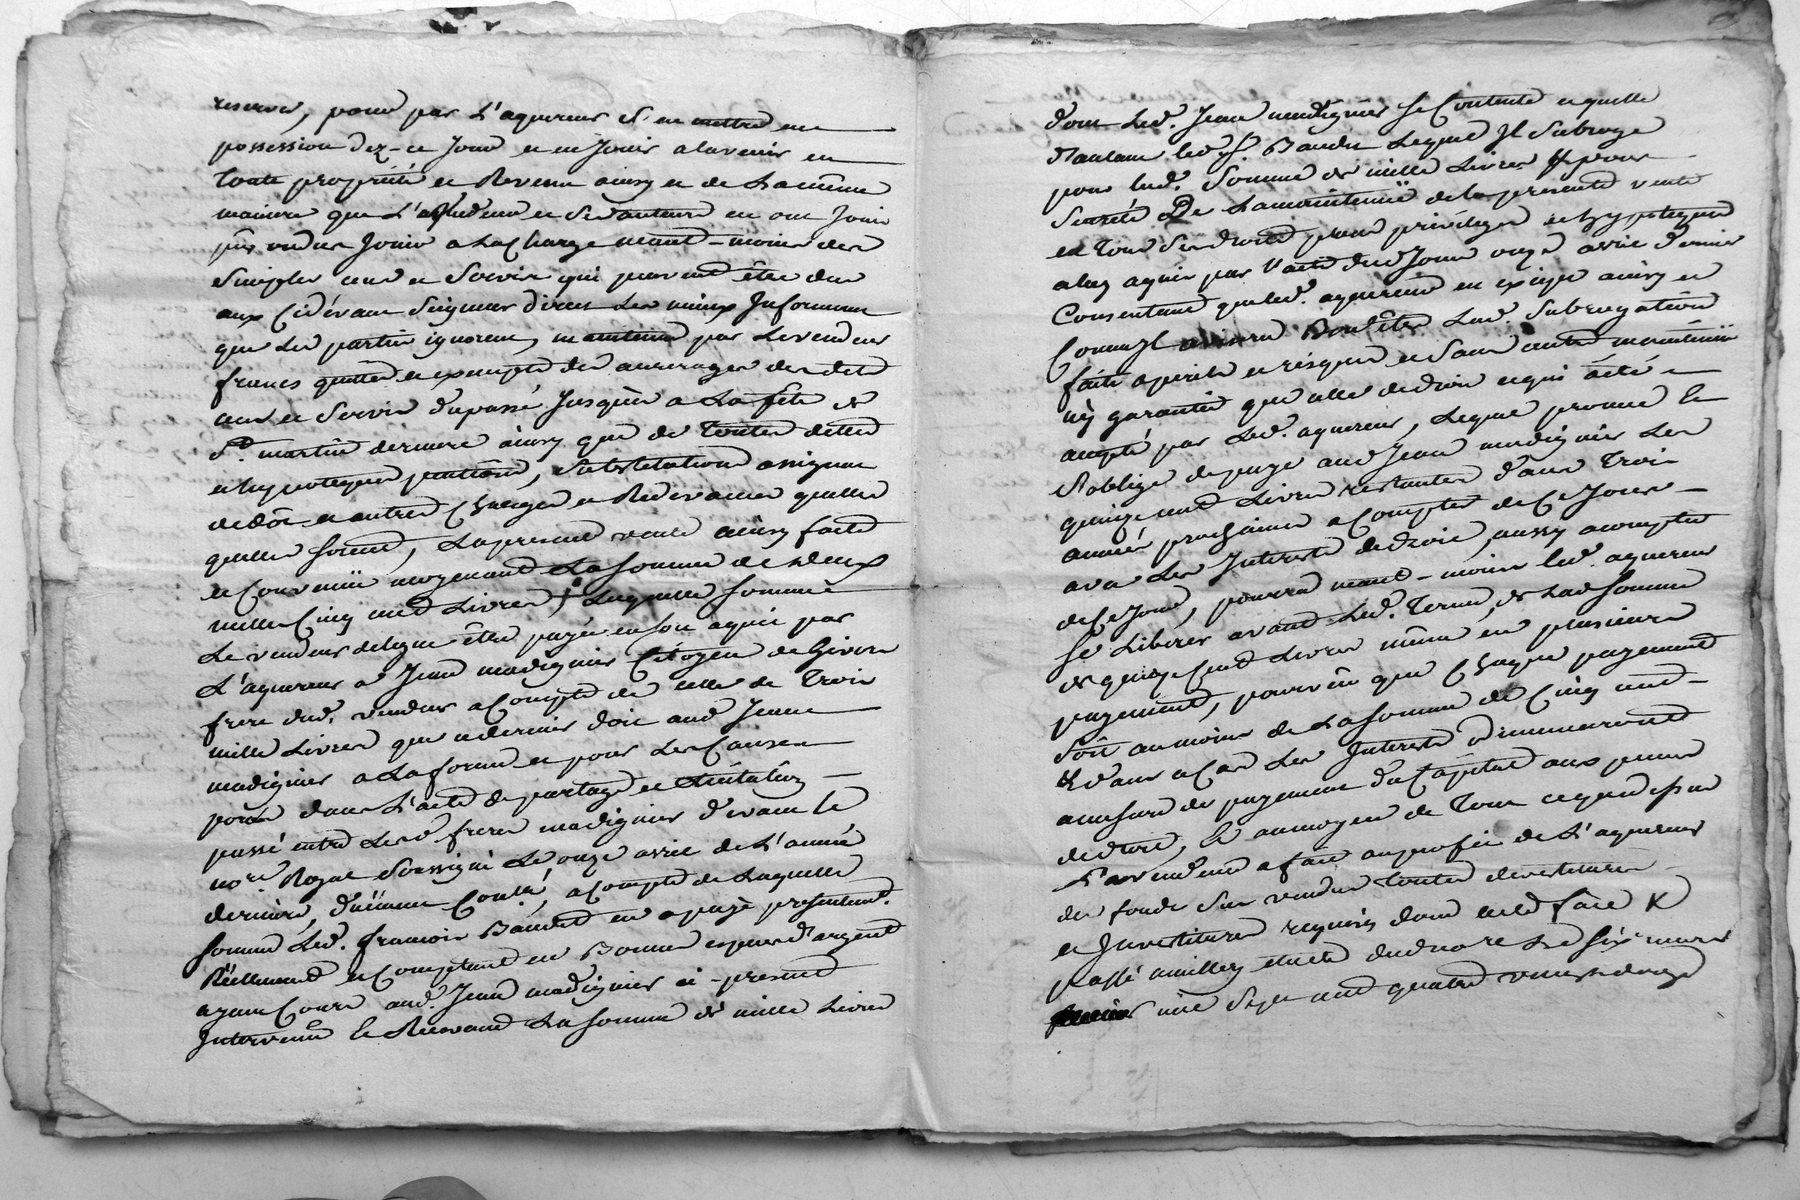 reserver, pour par L'aquereur S'en mettre en
possession dez-ce Jour et en Jouir a lavenir en
toute propriété et Revenu ainsy et de La même
maniere que L'a vendeur et Ses auteurs en ont Joui
pû ou du Jouir a La Charge neant-moins des
Simples cens et Servis qui peuvent être dus
aux Cidévant Seigneurs directs Les mieux Informés
que Les parties ignorent, maintenu par Le vendeur
francs quittes et exempts des arrerages des dits
cens et Servis du passé Jusques a La fête de
St. martin derniere ainsy que de toutes dettes
et hypoteques pentions, Substitutions assignats
de dôt et autres Charges et Redevances quelles
quelles soient, La presente vente ainsy faite
et Convenüe moyenant La somme de deux
mille Cinq cent Livres, Laquelle somme
Le vendeur delegue être payée en son aquit par
L'aquereur a Jean madignier Citoyen de Givors
frere dud. vendeur a Compte de celle de trois
mille Livres que ce dernier doit aud. Jean
madignier a La forme et pour Les Causes
portés dans L'acte de partage et licitation
passé entre Lesd. freres madignier devant le
nore. Royal Soussigné Le onze avril de L'année
derniere, duëment Conllé, a Compte de Laquelle
somme Led. françois Baudet en a payé presentemt.
Réellement et Comptant en Bonnes especes d'argent
ayant Cours aud. Jean madignier ci-present
Intervenu et Recevant La somme de mille Livres
dont Led. Jean madignier se Contente et quitte
d'autant led. Sr. Baudet Lequel Il Subroge
pour lad. Somme de mille Livres pour
Sureté De La maintenüe de la presente vente
en tous Ses droits privileges et hypoteques
a luy aquis par l'acte dud. Jour onze avril dernier
Consentant que led. aquereur en exsipe ainsy et
Comme Il avisera Bon être Lad. Subrogation
faite a perils et risques et Sans autre maintenüe
ny garantie que celle de droit et qui a été
accepté par Led. aquereur, Lequel promet et
S'oblige de payer aud. Jean madignier Les
quinze cent Livres restantes dans trois
années prochaines a Compter de Ce Jour
avec Les Interets de droit, aussy a compter
de Ce Jour, pourra neant-moins led. aquereur
Se Liberer avant Led. terme, de Lad. somme
de quinze Cent Livres même en plusieurs
payements, pourvû que Chaque payement
Soit au moins de La somme de Cinq cent
& dans ce cas Les Interets diminueront
a mesure des payements du Capital aux peines
de droit, Et au moyen de tout ce que dessus
Le vendeur a fait au profit de L'aquereur
des fonds Sus vendus toutes devestitures
et Investitures requises dont acte fait &
passé a millery etude dud. nore. Le Six mars
mil Sept cent quatre vingt douze